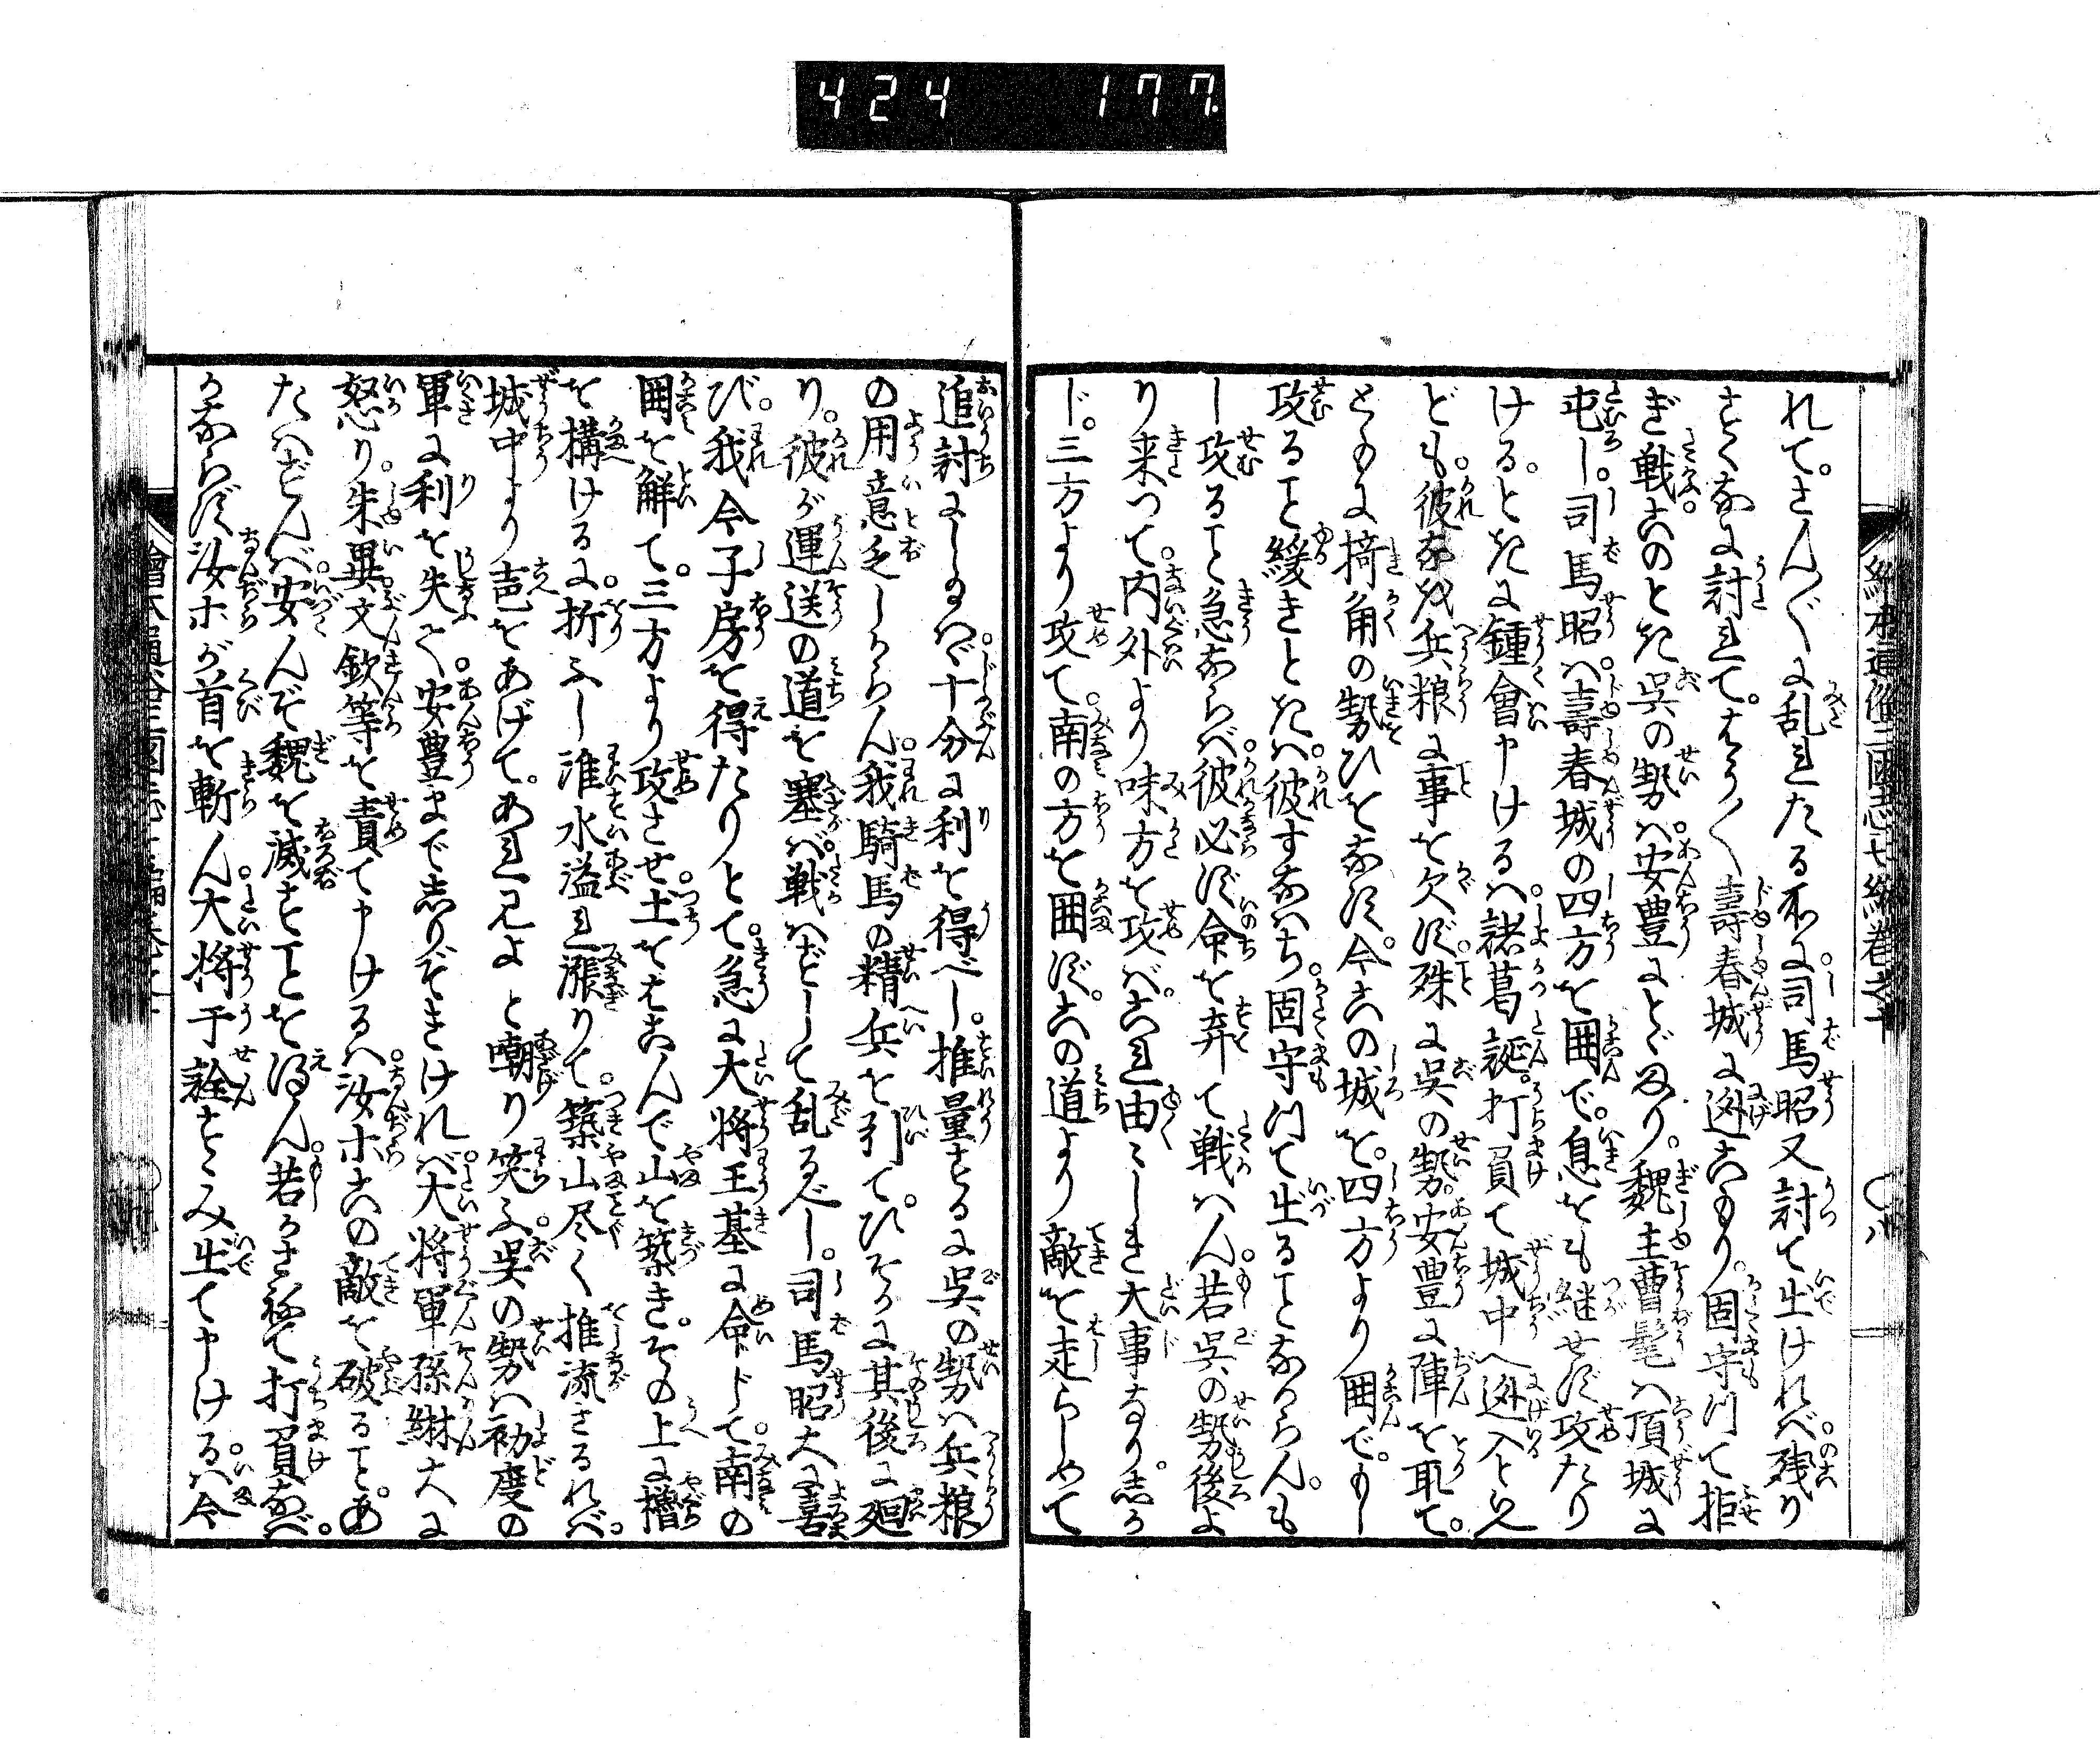 424 177
れて。さん〲に乱れたる所に司馬昭又討て出ければ。残り
すくなに討れて。やう〳〵壽春城に逃こもり。固守つて拒
ぎ戦ふ。このとき呉の勢は。安豊にとゞまり。魏主曹髦は頂城に
屯し。司馬昭は。壽春城の四方を囲で。息をも継せず攻たり
ける。ときに鍾會申けるは。諸葛誕。打負て城中へ逃入と見
ども。彼なを兵粮に事を欠ず。殊に呉の勢。安豊に陣を取て。
ともに掎角の勢ひをなす。今この城を。四方より囲で。もし
攻ること緩きときは。彼すなはち。固守つて出ることなからん。も
し攻ること急ならば。彼必ず命を弃て戦はん。若呉の勢後よ
り来つて。内外より味方を攻ば。これ由〻しき大事なり。しか
じ。三方より攻て。南の方を囲ず。この道より敵を走らしめて
追討にしなば。十分に利を得べし。推量するに呉の勢は兵粮
の用意乏しからん。我騎馬の精兵を引て。ひそかに其後に廻
り。彼が運送の道を塞ば。戦はずして乱るべし。司馬昭大に喜
び。我今子房を得たりとて。急に大将王基に命じて。南の
囲を解て。三方より攻させ。土をはこんで山を築き。その上に櫓
を構けるに。折ふし淮水溢れ漲りて。築山尽く推流されば。
城中より声をあげて。あれ見よと嘲り笑ふ。呉の勢は初度の
軍に利を失て。安豊まで志りぞきければ。大将軍孫綝大に
怒り。朱異。文欽等を責て申けるは。汝ホこの敵を破ること。あ
たはずんば。安んぞ魏を滅すことを得ん。若かさねて打負なば。
かならず汝ホが首を斬ん。大将于詮すゝみ出て申けるは。今